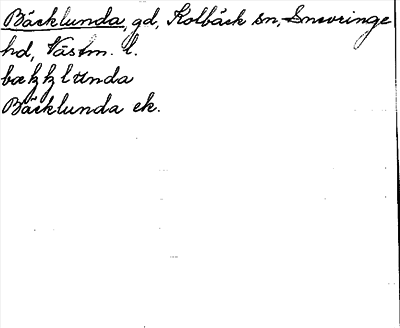 Bäcklunda, gd, Kolbäck sn, Snevringe
hd, Västm. l.
bæk̡k̡lunda
Bäcklunda ek.